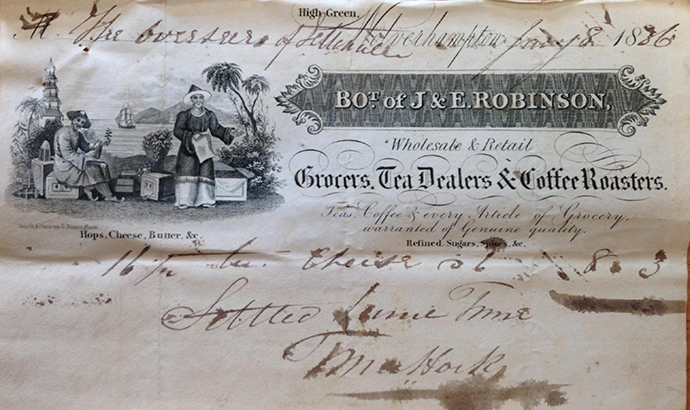 High Green,
The overseers of Tettenhall Wolverhampton Jany 8 1836
BOT. of J & E. ROBINSON,
Wholesale & Retail
Grocers, Tea Dealers & Coffee Roasters.
Teas, Coffee & every Article of Grocery,
warranted of Genuine quality.
Hops, Cheese, Butter, &c.
Refined Sugars, Spices, &c.
16 ½ Cheese 8 3
Settled Same Time